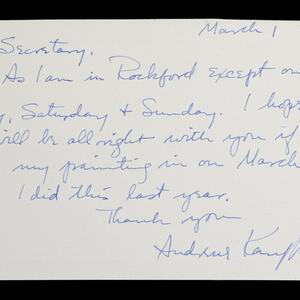 March 1
Secretary,
As I am in Rockford except on
, Saturday + Sunday. I hope
will be all right with you if
my painting in on March
I did this last year.
Thank you